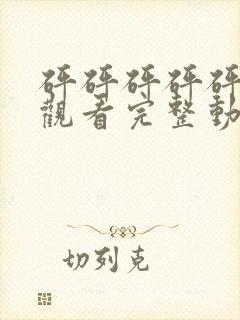 砰砰砰砰砰
觀看完整動
切列克